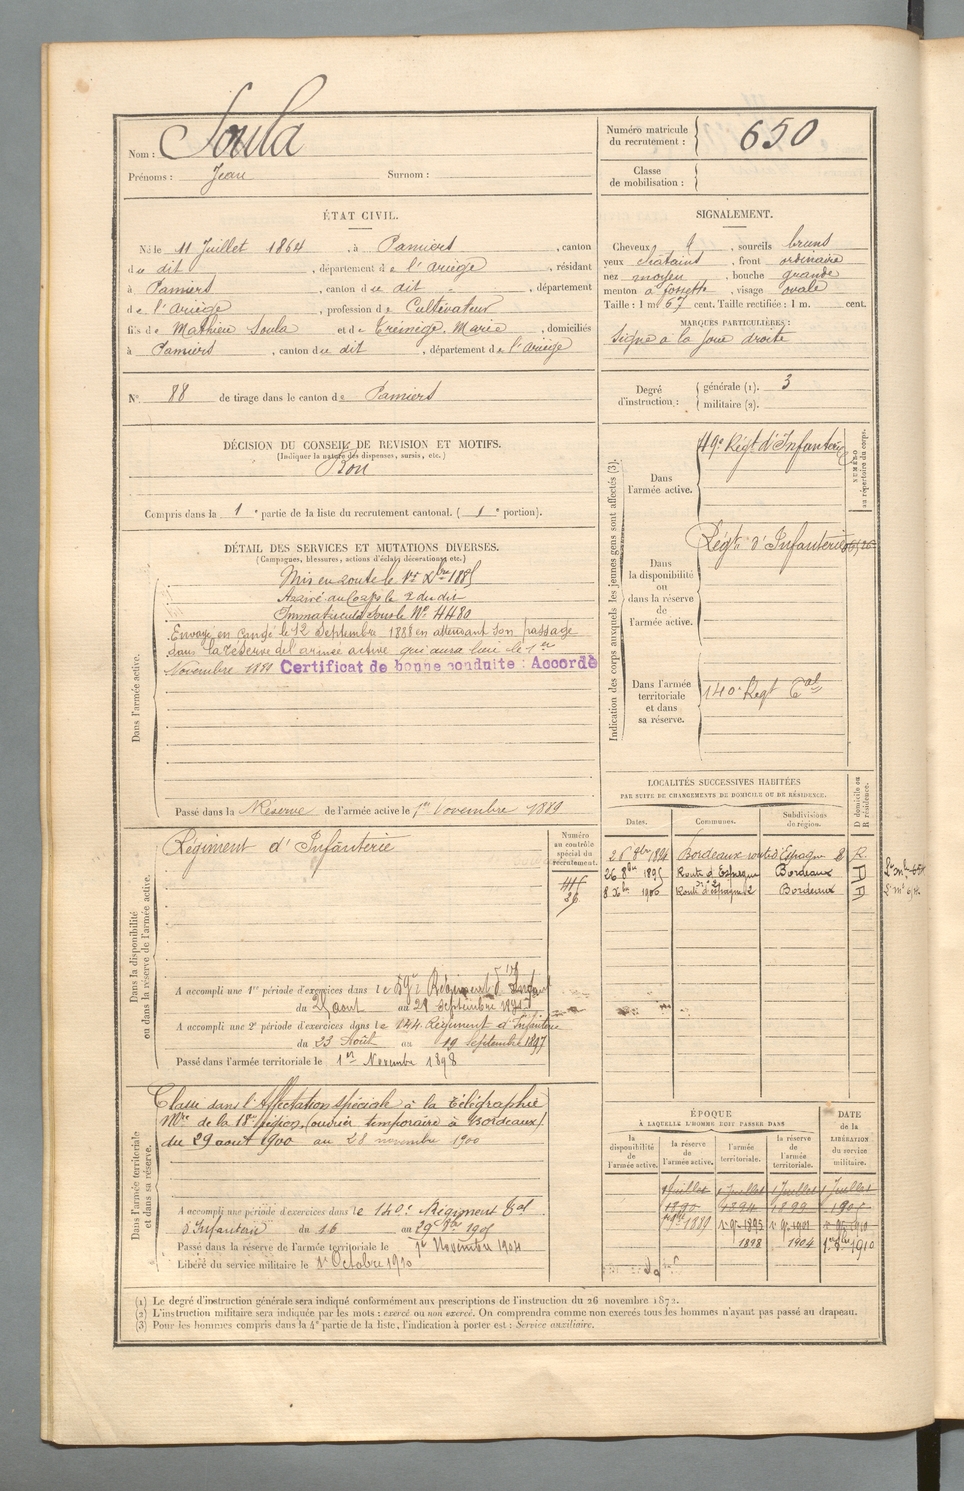 Nom : Soula
Prénoms : Jean Surnom :
Numéro matricule du recrutement : 650
Classe de mobilisation :
ÉTAT CIVIL.
Né le 11 Juillet 1864, à Pamiers, canton
du dit, département de l'Ariège, résidant
à Pamiers, canton du dit, département
de l'Ariège, profession de Cultivateur
fils de Mathieu Soula et de Marie, domiciliés
à Pamiers, canton du dit, département de l'Ariège
N° 88 de tirage dans le canton de Pamiers
SIGNALEMENT.
Cheveux, sourcils bruns
yeux chatains, front ordinaire
nez moyen, bouche grande
menton à fossette, visage ovale
Taille : 1 m. 67 cent. Taille rectifiée : 1 m. cent.
MARQUES PARTICULIÈRES :
Signe a la joue droite
Degré d'instruction : générale (1). 3
militaire (2).
DÉCISION DU CONSEIL DE REVISION ET MOTIFS.
(Indiquer la nature des dispenses, sursis, etc.)
Bon
Compris dans la 1e partie de la liste du recrutement cantonal. (1e portion).
DÉTAIL DES SERVICES ET MUTATIONS DIVERSES.
(Campagnes, blessures, actions d'éclat, décorations, etc.)
Dans l'armée active.
Mis en route le 1er Xbre 1885
Arrivé au Corps le 2 du dit
Immatriculé sous le N° 4480
Envoyé en congé le 12 Septembre 1888 en attendant son passage
dans la réserve de l'armée active qui aura lieu le 1er
Novembre Certificat de bonne conduite : Accordé
Passé dans la Réserve de l'armée active le 1er Novembre 1889
Indication des corps auxquels les jeunes gens sont affectés (3).
NUMÉRO au répertoire du corps.
Dans l'armée active.
49e Régt d'Infanterie
Dans la disponibilité ou dans la réserve de l'armée active.
Régt d'Infanterie
Dans l'armée territoriale et dans sa réserve.
140e Regt Tal
LOCALITÉS SUCCESSIVES HABITÉES
PAR SUITE DE CHANGEMENTS DE DOMICILE OU DE RÉSIDENCE.
Dates. Communes. Subdivisions de région. D domicile ou R résidence.
26 8bre 1894 Bordeaux route d'Espagne 2 R
26 8bre 1895 Route d'Espagne Bordeaux R
8 Xbre 1900 Route d'espagne 2 Bordeaux R
Dans la disponibilité ou dans la réserve de l'armée active.
Régiment d'Infanterie
Numéro au contrôle spécial du recrutement.
A accompli une 1re période d'exercices dans le Régiment d'Infanterie
du 25 aout au 21 septembre
A accompli une 2e période d'exercices dans le 144 Régiment d'Infanterie
du 23 Août au 19 Septembre 1897
Passé dans l'armée territoriale le 1er Novembre 1898
Dans l'armée territoriale et dans sa réserve.
Classe dans l'Affectation spéciale à la Télégraphie
Mre de la 18e région (ouvrier temporaire à Bordeaux)
du 29 aout 1900 au 28 novembre 1900
A accompli une période d'exercices dans le 140e Régiment Tal
d'Infanterie du 16 au 29
Passé dans la réserve de l'armée territoriale le 1er Novembre 1904
Libéré du service militaire le 1er Octobre 1910
ÉPOQUE
À LAQUELLE L'HOMME DOIT PASSER DANS
la disponibilité de l'armée active. la réserve de l'armée active. l'armée territoriale. la réserve de l'armée territoriale.
DATE de la LIBÉRATION du service militaire.
1 Juillet 1 Juillet 1 Juillet 1 Juillet
1890 1899
1898 1904 1910
(1) Le degré d'instruction générale sera indiqué conformément aux prescriptions de l'instruction du 26 novembre 1872.
(2) L'instruction militaire sera indiquée par les mots : exercé ou non exercé. On comprendra comme non exercés tous les hommes n'ayant pas passé au drapeau.
(3) Pour les hommes compris dans la 4e partie de la liste, l'indication à porter est : Service auxiliaire.